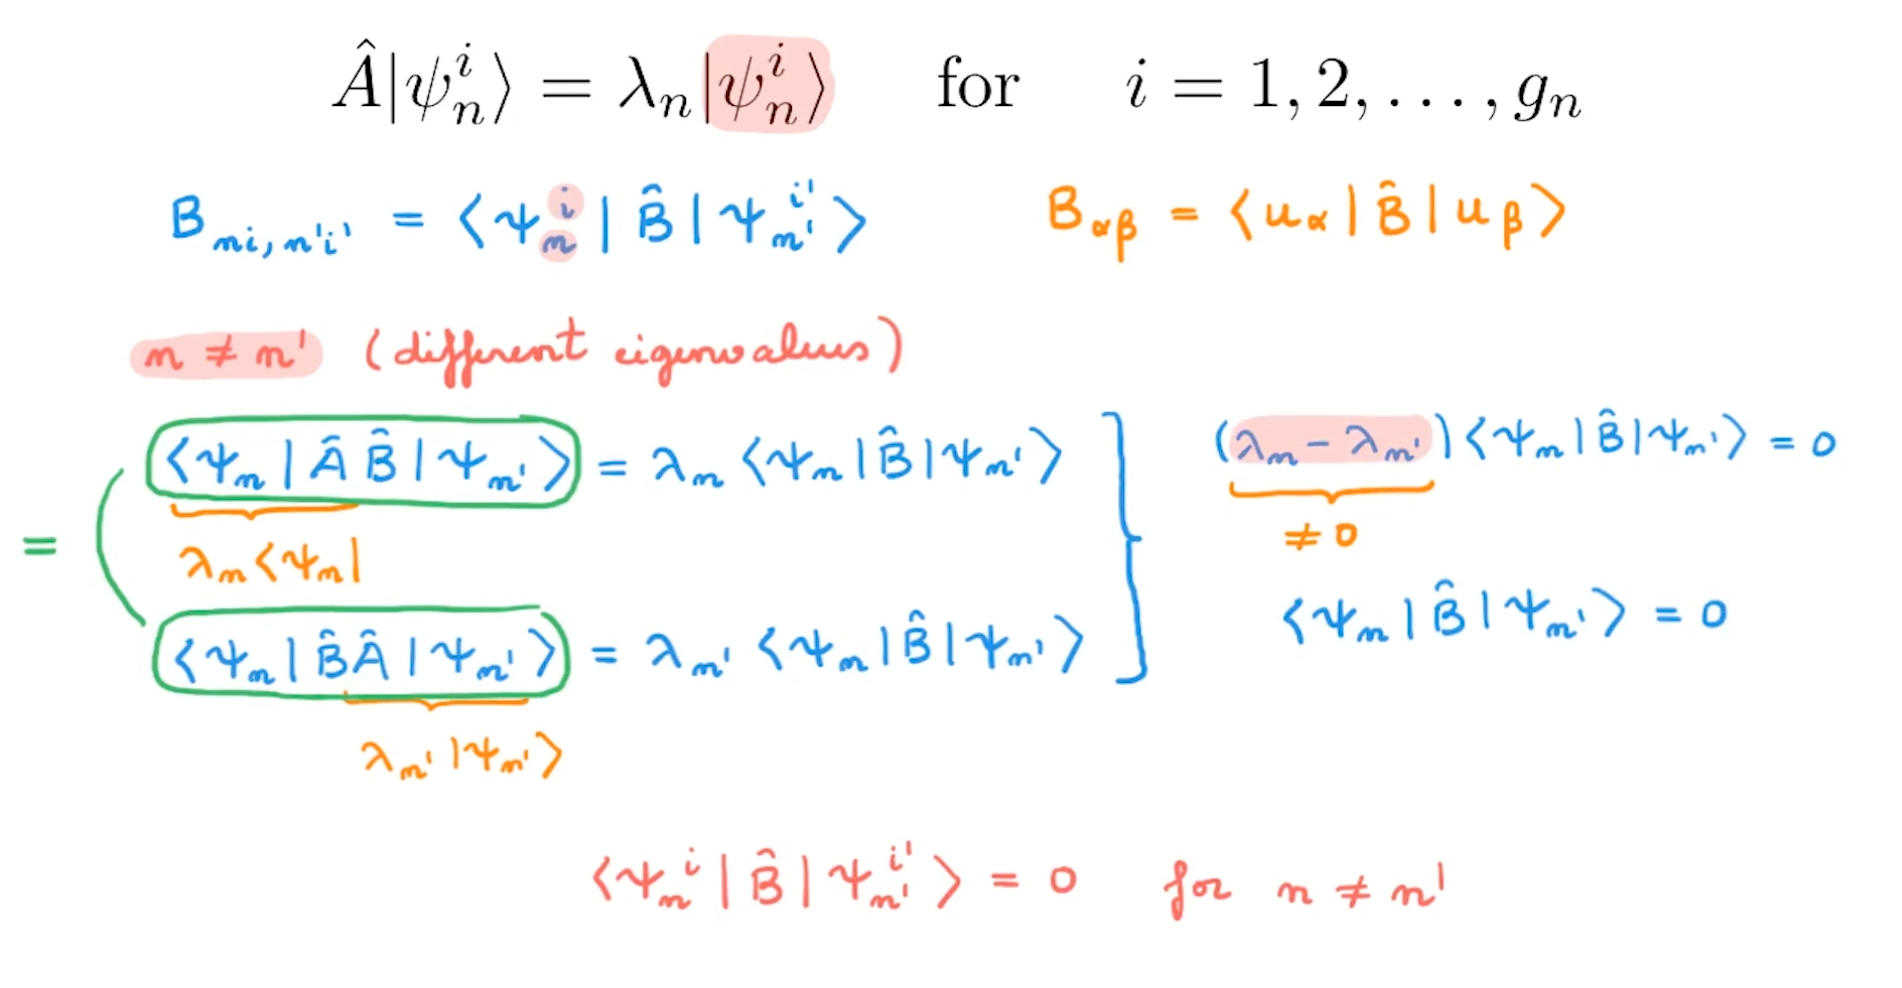 Â|ψ_n^i⟩ = λ_n|ψ_n^i⟩ for i = 1, 2, . . . , g_n
B_{ni, n'i'} = ⟨ψ_n^i | B̂ | ψ_{n'}^{i'}⟩ B_{αβ} = ⟨u_α | B̂ | u_β⟩
n ≠ n' (different eigenvalues)
⟨ψ_n | Â B̂ | ψ_{n'}⟩ = λ_n ⟨ψ_n | B̂ | ψ_{n'}⟩
λ_n ⟨ψ_n|
=
⟨ψ_n | B̂ Â | ψ_{n'}⟩ = λ_{n'} ⟨ψ_n | B̂ | ψ_{n'}⟩
λ_{n'} |ψ_{n'}⟩
(λ_n − λ_{n'}) ⟨ψ_n | B̂ | ψ_{n'}⟩ = 0
≠ 0
⟨ψ_n | B̂ | ψ_{n'}⟩ = 0
⟨ψ_n^i | B̂ | ψ_{n'}^{i'}⟩ = 0 for n ≠ n'